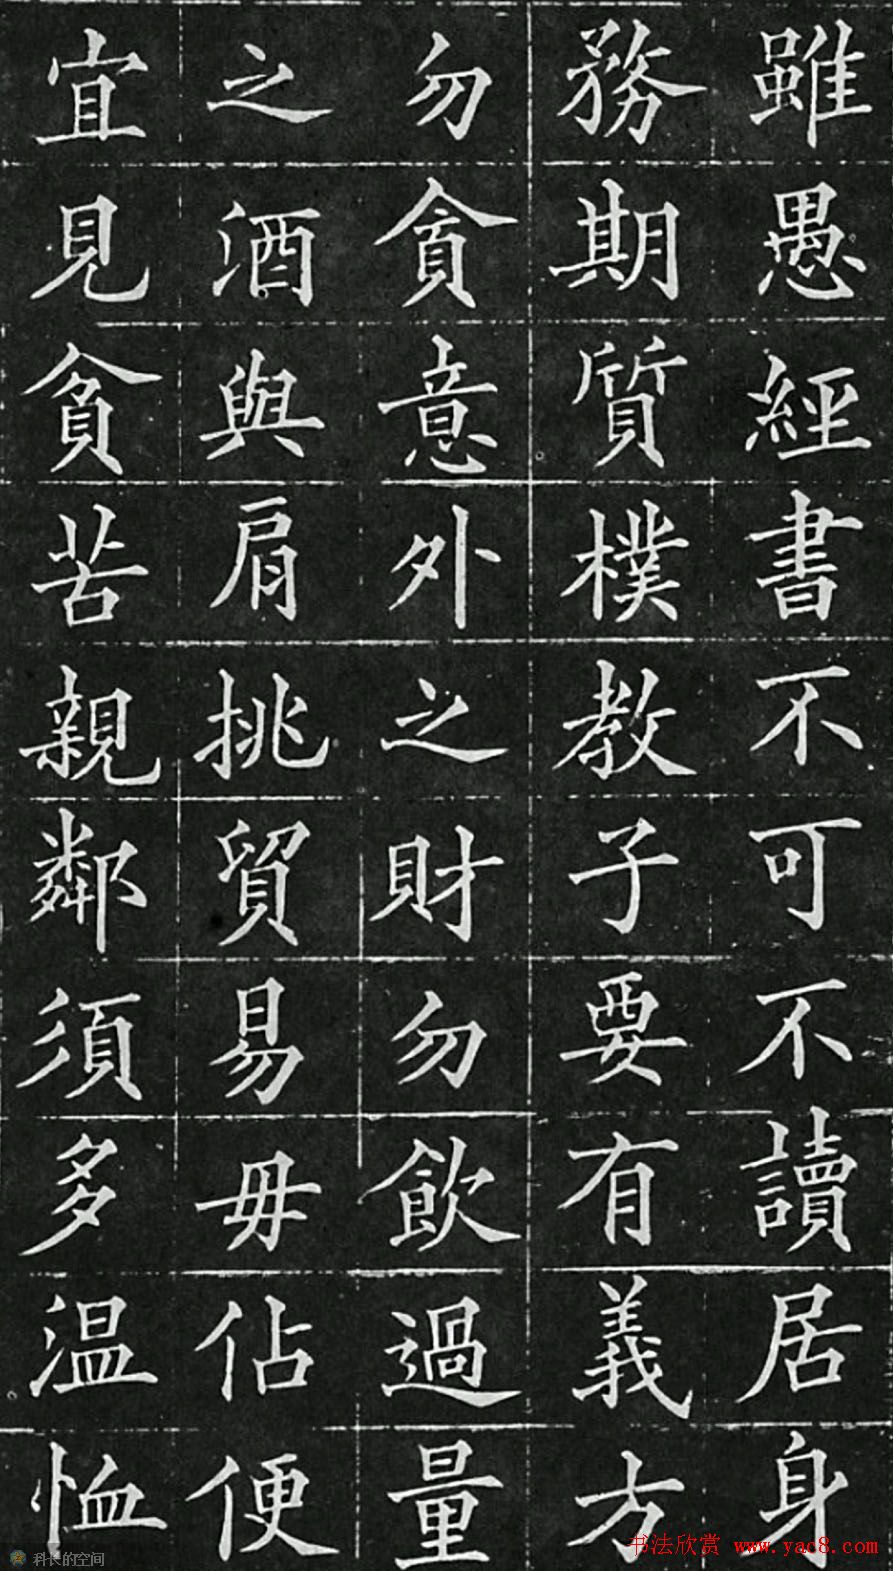 雖愚經書不可不讀居身
務期質樸教子要有義方
勿貪意外之財勿飲過量
之酒與肩挑貿易毋佔便
宜見貧苦親鄰須多温恤
书法欣赏 www.yac8.com
科长的空间